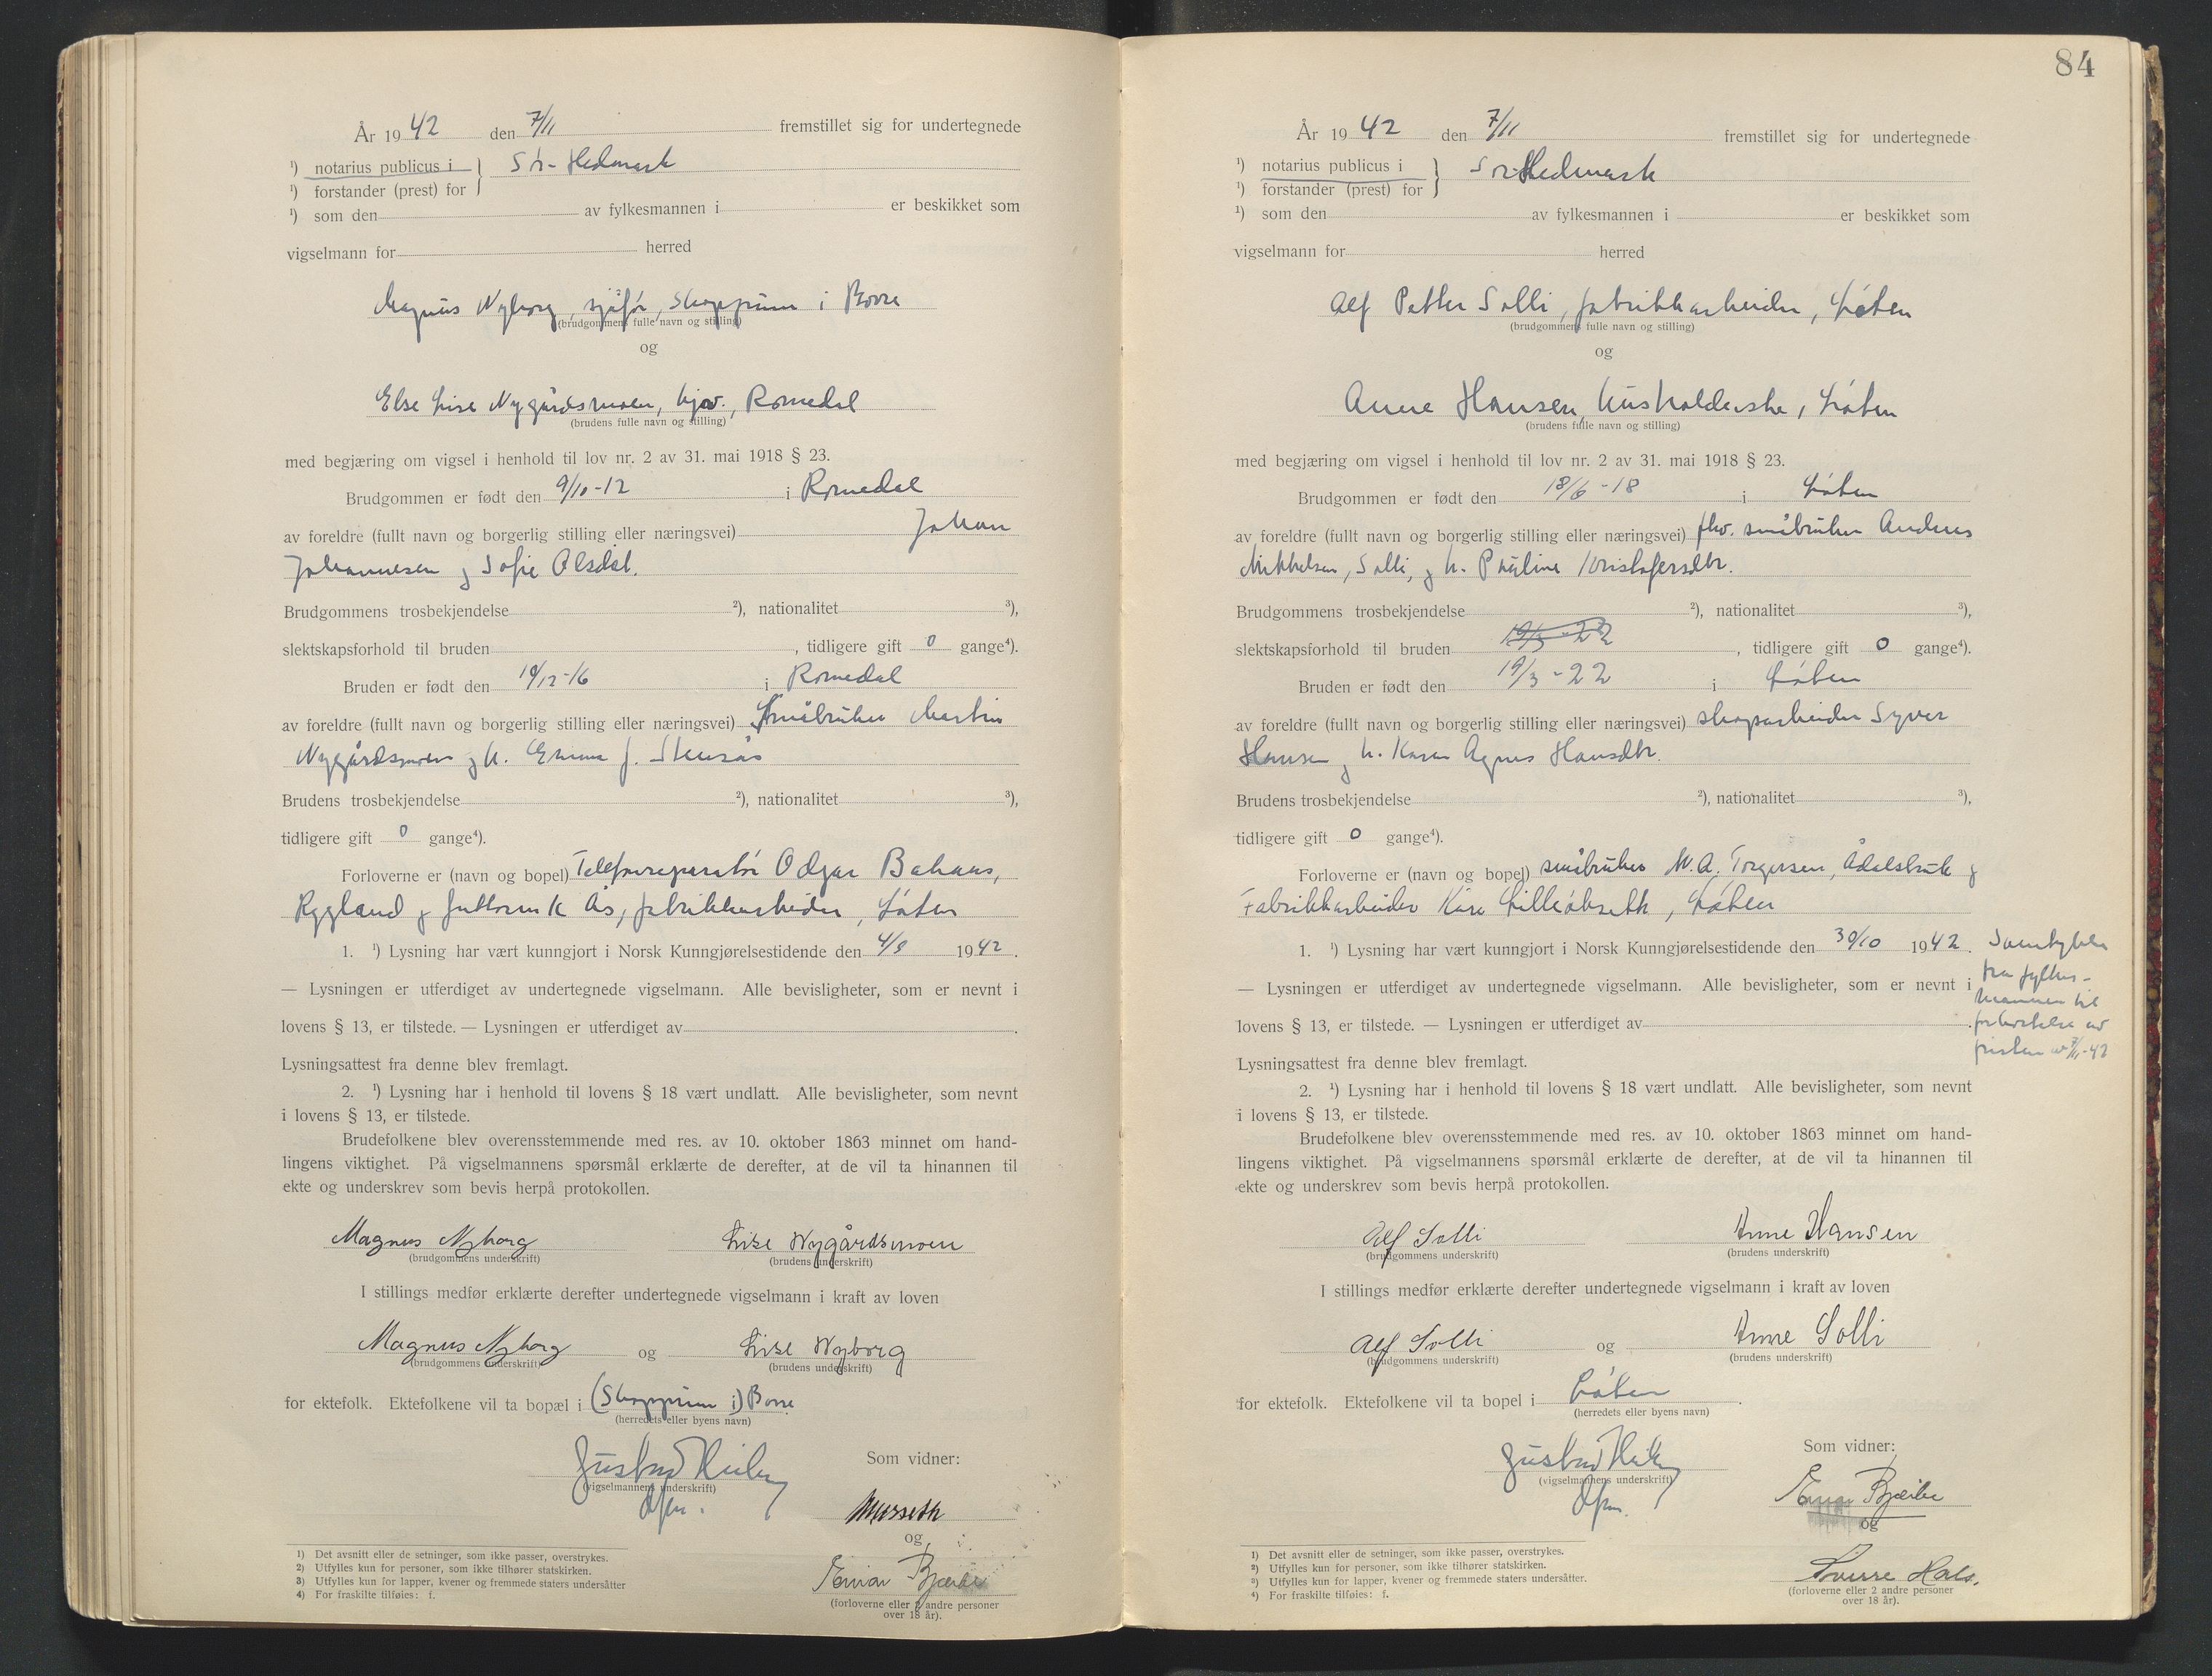 År 1942 den 7/11 fremstillet sig for undertegnede
¹) notarius publicus i } Sør-Hedmark
¹) forstander (prest) for
¹) som den av fylkesmannen i er beskikket som
vigselmann for herred
Magnus Nyborg, sjåfør, Skoppum i Borre
(brudgommens fulle navn og stilling)
og
Else Lise Nygårdsmoen, hjv., Romedal
(brudens fulle navn og stilling)
med begjæring om vigsel i henhold til lov nr. 2 av 31. mai 1918 § 23.
Brudgommen er født den 9/10-12 i Romedal
av foreldre (fullt navn og borgerlig stilling eller næringsvei) Johan
Johannesen og Sofie Olsdat.
Brudgommens trosbekjendelse ²), nationalitet ³),
slektskapsforhold til bruden , tidligere gift 0 gange⁴).
Bruden er født den 19/12-16 i Romedal
av foreldre (fullt navn og borgerlig stilling eller næringsvei) Småbruker Martin
Nygårdsmoen og h. Emma f. Stensås
Brudens trosbekjendelse ²), nationalitet ³),
tidligere gift 0 gange⁴).
Forloverne er (navn og bopel) Telefonreparatør Odgar Bakaas,
Rygland og Guttorm K Ås, fabrikkarbeider, Løten
1. ¹) Lysning har vært kunngjort i Norsk Kunngjørelsestidende den 4/9 1942.
— Lysningen er utferdiget av undertegnede vigselmann. Alle bevisligheter, som er nevnt i
lovens § 13, er tilstede. — Lysningen er utferdiget av .
Lysningsattest fra denne blev fremlagt.
2. ¹) Lysning har i henhold til lovens § 18 vært undlatt. Alle bevisligheter, som nevnt
i lovens § 13, er tilstede.
Brudefolkene blev overensstemmende med res. av 10. oktober 1863 minnet om hand-
lingens viktighet. På vigselmannens spørsmål erklærte de derefter, at de vil ta hinannen til
ekte og underskrev som bevis herpå protokollen.
Magnus Nyborg Lise Nygårdsmoen
(brudgommens underskrift) (brudens underskrift)
I stillings medfør erklærte derefter undertegnede vigselmann i kraft av loven
Magnus Nyborg og Lise Nyborg
(brudgommens underskrift) (brudens underskrift)
for ektefolk. Ektefolkene vil ta bopæl i (Skoppum i) Borre
(herredets eller byens navn)
Gustav Heiberg
(vigselmannens underskrift)
dfm.
Som vidner:
Musseth
og
Einar Bjerke
(forloverne eller 2 andre personer
over 18 år).
1) Det avsnitt eller de setninger, som ikke passer, overstrykes.
2) Utfylles kun for personer, som ikke tilhører statskirken.
3) Utfylles kun for lapper, kvener og fremmede staters undersåtter
4) For fraskilte tilføies: f.
84
År 1942 den 7/11 fremstillet sig for undertegnede
¹) notarius publicus i } Sør-Hedmark
¹) forstander (prest) for
¹) som den av fylkesmannen i er beskikket som
vigselmann for herred
Alf Petter Solli, fabrikkarbeider, Løten
(brudgommens fulle navn og stilling)
og
Anne Hansen, husholderske, Løten
(brudens fulle navn og stilling)
med begjæring om vigsel i henhold til lov nr. 2 av 31. mai 1918 § 23.
Brudgommen er født den 18/6-18 i Løten
av foreldre (fullt navn og borgerlig stilling eller næringsvei) fhv. småbruker Andreas
Mikkelsen, Solli, og h. Pauline Kristofersdtr.
Brudgommens trosbekjendelse ²), nationalitet ³),
slektskapsforhold til bruden 19/3-22, tidligere gift 0 gange⁴).
Bruden er født den 19/3-22 i Løten
av foreldre (fullt navn og borgerlig stilling eller næringsvei) skogsarbeider Syver
Hansen og h. Karen Agnes Hansdtr.
Brudens trosbekjendelse ²), nationalitet ³),
tidligere gift 0 gange⁴).
Forloverne er (navn og bopel) småbruker M. A. Torgersen, Ådalsbruk og
Fabrikkarbeider Kåre Lilleökseth, Løten
1. ¹) Lysning har vært kunngjort i Norsk Kunngjørelsestidende den 30/10 1942.
— Lysningen er utferdiget av undertegnede vigselmann. Alle bevisligheter, som er nevnt i
lovens § 13, er tilstede. — Lysningen er utferdiget av .
Samtykke
fra fylkes-
mannen til
forkortelse av
fristen av 7/11-42
Lysningsattest fra denne blev fremlagt.
2. ¹) Lysning har i henhold til lovens § 18 vært undlatt. Alle bevisligheter, som nevnt
i lovens § 13, er tilstede.
Brudefolkene blev overensstemmende med res. av 10. oktober 1863 minnet om hand-
lingens viktighet. På vigselmannens spørsmål erklærte de derefter, at de vil ta hinannen til
ekte og underskrev som bevis herpå protokollen.
Alf Solli Anne Hansen
(brudgommens underskrift) (brudens underskrift)
I stillings medfør erklærte derefter undertegnede vigselmann i kraft av loven
Alf Solli og Anne Solli
(brudgommens underskrift) (brudens underskrift)
for ektefolk. Ektefolkene vil ta bopel i Løten.
(herredets eller byens navn)
Gustav Heiberg
(vigselmannens underskrift)
dfm.
Som vidner:
Einar Bjerke
og
Sverre Hals.
(forloverne eller 2 andre personer
over 18 år).
1) Det avsnitt eller de setninger, som ikke passer, overstrykes.
2) Utfylles kun for personer, som ikke tilhører statskirken.
3) Utfylles kun for lapper, kvener og fremmede staters undersåtter.
4) For fraskilte tilføies: f.